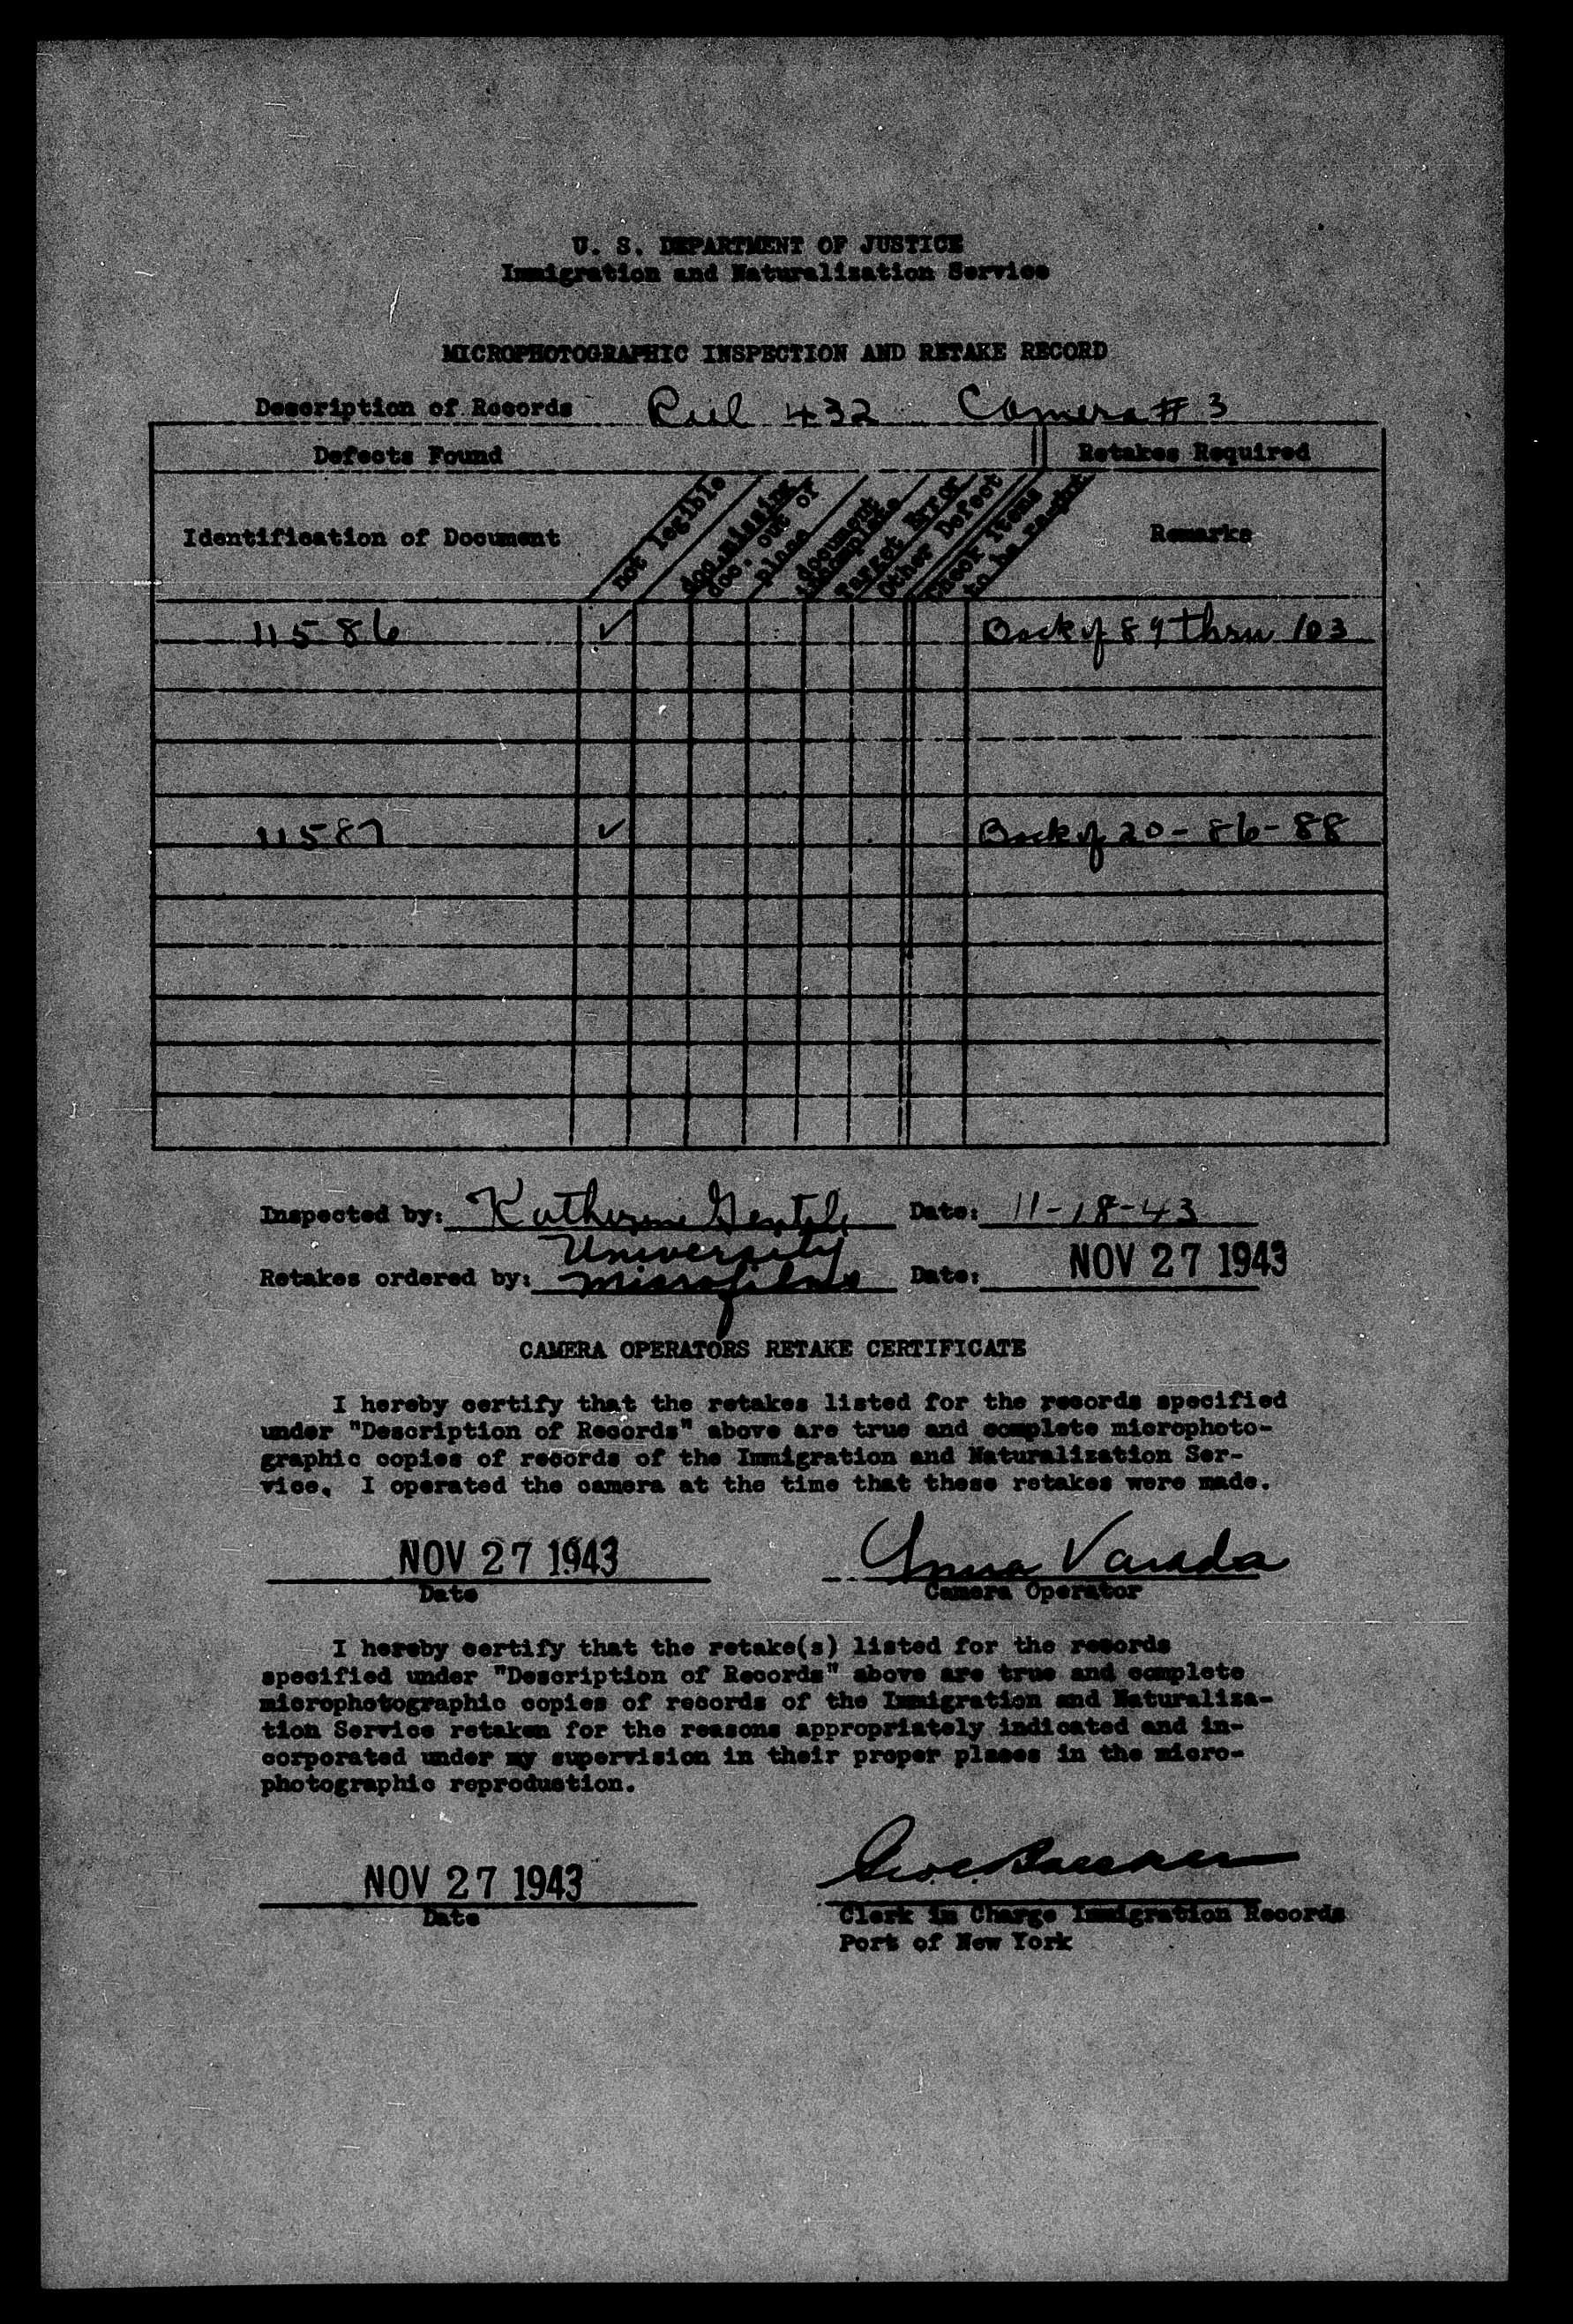 U. S. DEPARTMENT OF JUSTICE
Immigration and Naturalization Service
MICROPHOTOGRAPHIC INSPECTION AND RETAKE RECORD
Description of Records Reel 432 Camera # 3
Defects Found Retakes Required
Identification of Document
not legible
doc. missing
doc. out of
place
document
incomplete
Target Error
Other Defect
Check items
to be
Remarks
11586 ✓ Back of 89 thru 103
11587 ✓ Back of 20-86-88
Inspected by: Katherine Gentile Date: 11-18-43
University
Retakes ordered by: Microfilms Date: NOV 27 1943
CAMERA OPERATORS RETAKE CERTIFICATE
I hereby certify that the retakes listed for the records specified
under "Description of Records" above are true and complete microphoto-
graphic copies of records of the Immigration and Naturalization Ser-
vice. I operated the camera at the time that these retakes were made.
NOV 27 1943 Anna Varada
Date Camera Operator
I hereby certify that the retake(s) listed for the records
specified under "Description of Records" above are true and complete
microphotographic copies of records of the Immigration and Naturaliza-
tion Service retaken for the reasons appropriately indicated and in-
corporated under my supervision in their proper places in the micro-
photographic reproduction.
NOV 27 1943
Date Clerk in Charge Immigration Records
Port of New York